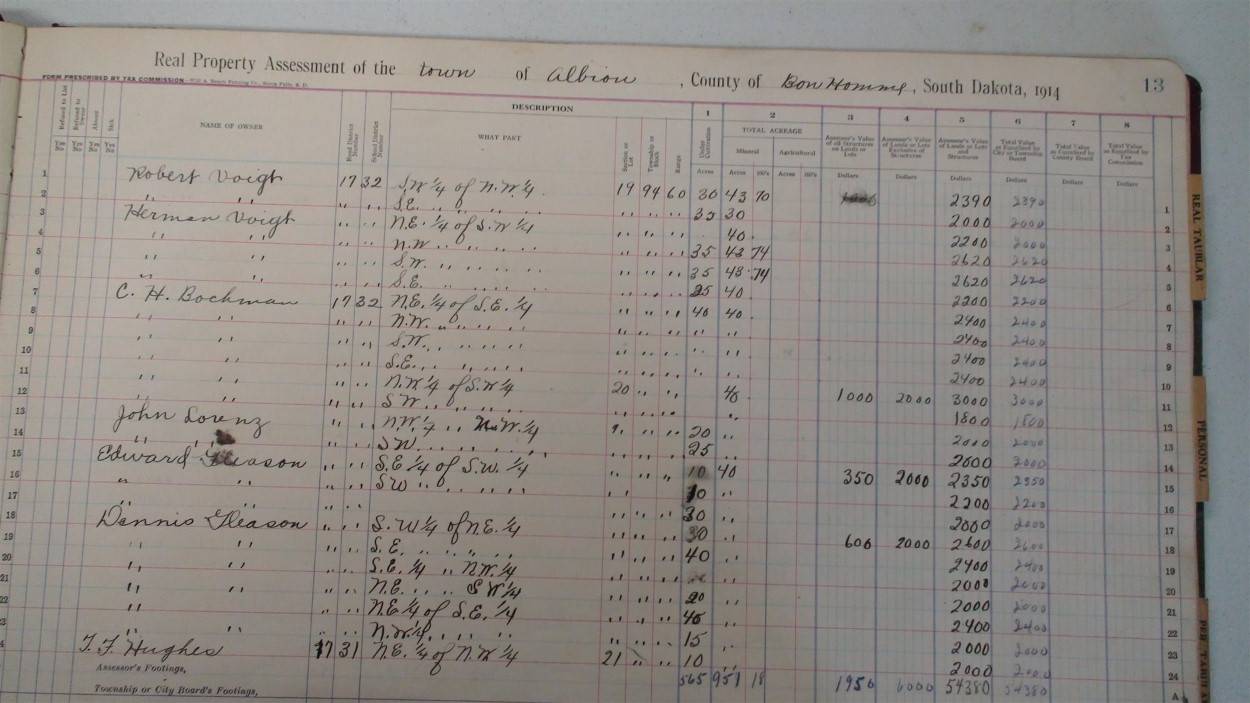 Real Property Assessment of the town of Albion, County of Bon Homme, South Dakota, 1914 13
FORM PRESCRIBED BY TAX COMMISSION
DESCRIPTION 1 2 3 4 5 6 7 8
NAME OF OWNER WHAT PART TOTAL ACREAGE
Refused to List Refused to Swear Absent Sick Road District Number School District Number Section or Lot Township or Block Range Under Cultivation Mineral Agricultural
Assessor's Value of all Structures on Lands or Lots Assessor's Value of Lands or Lots Exclusive of Structures Assessor's Value of Lands or Lots and Structures Total Value as Equalized by City or Township Board Total Value as Equalized by County Board Total Value as Equalized by Tax Commission
Yes No Yes No Yes No Yes No Acres Acres 100's Acres 100's Dollars Dollars Dollars Dollars Dollars Dollars
1 Robert Voigt 17 32 S.W 1/4 of N.W. 1/4 19 94 60 30 43 70 2390 2390 1
2 " " " " S.E. " " " " " " " 35 30 2000 2000 2
3 Herman Voigt " " N.E. 1/4 of S.W 1/4 " " " 40 2200 2000 3
4 " " " " N.W " " " " " " " 35 43 74 2620 2620 4
5 " " " " S.W. " " " " " " " 35 43 74 2620 2620 5
6 " " " " S.E. " " " " " " " 25 40 2200 2200 6
7 C. H. Bochman 17 32 N.E. 1/4 of S.E. 1/4 " " " 40 40 2400 2400
8 " " " " N.W. " " " " " " " " " 2400 2400 8
9 " " " " S.W. " " " " " " " " " 2400 2400 9
10 " " " " S.E. " " " " " " " " " 2400 2400 10
11 " " " " N.W 1/4 of S.W 1/4 20 " " 40 1000 2000 3000 3000 11
12 " " " " S W " " " " " " " " 1800 1800 12
13 John Lorenz " " N.W. 1/4 " N.W. 1/4 " " " 20 " 2000 2000 13
14 " " " " SW " " " " " " " 25 " 2000 14
15 Edward Gleason " " S.E 1/4 of S.W. 1/4 " " " 10 40 350 2000 2350 2350 15
16 " " " " SW " " " " " " 10 " 2200 2200 16
17 " " " 30 " 2000 2000 17
18 Dennis Gleason " " S. W 1/4 of N.E. 1/4 " " " 30 " 600 2000 2600 2600 18
19 " " " " S.E. " " " " " " " 40 " 2400 2400 19
20 " " " " S.E. 1/4 " N.W. 1/4 " " " " 2000 2000
21 " " " " N.E. " " S W 1/4 " " " 20 " 2000 2000 21
22 " " " " N.E 1/4 of S.E. 1/4 " " " " 2400 2400 22
" " " " N.W 1/4 " " " " " " 15 " 2000 2000 23
T. F. Hughes 17 31 N.E. 1/4 of N.W 1/4 21 " " 10 " 2000 2000 24
Assessor's Footings, 565 951 18 1950 6000 54380 54380 A
Township or City Board's Footings,
REAL TABULAR
PERSONAL